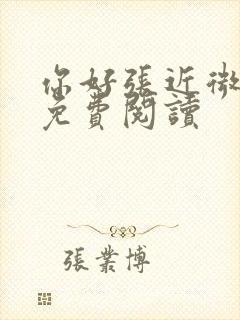 你好張近微
免費閱讀
張業博